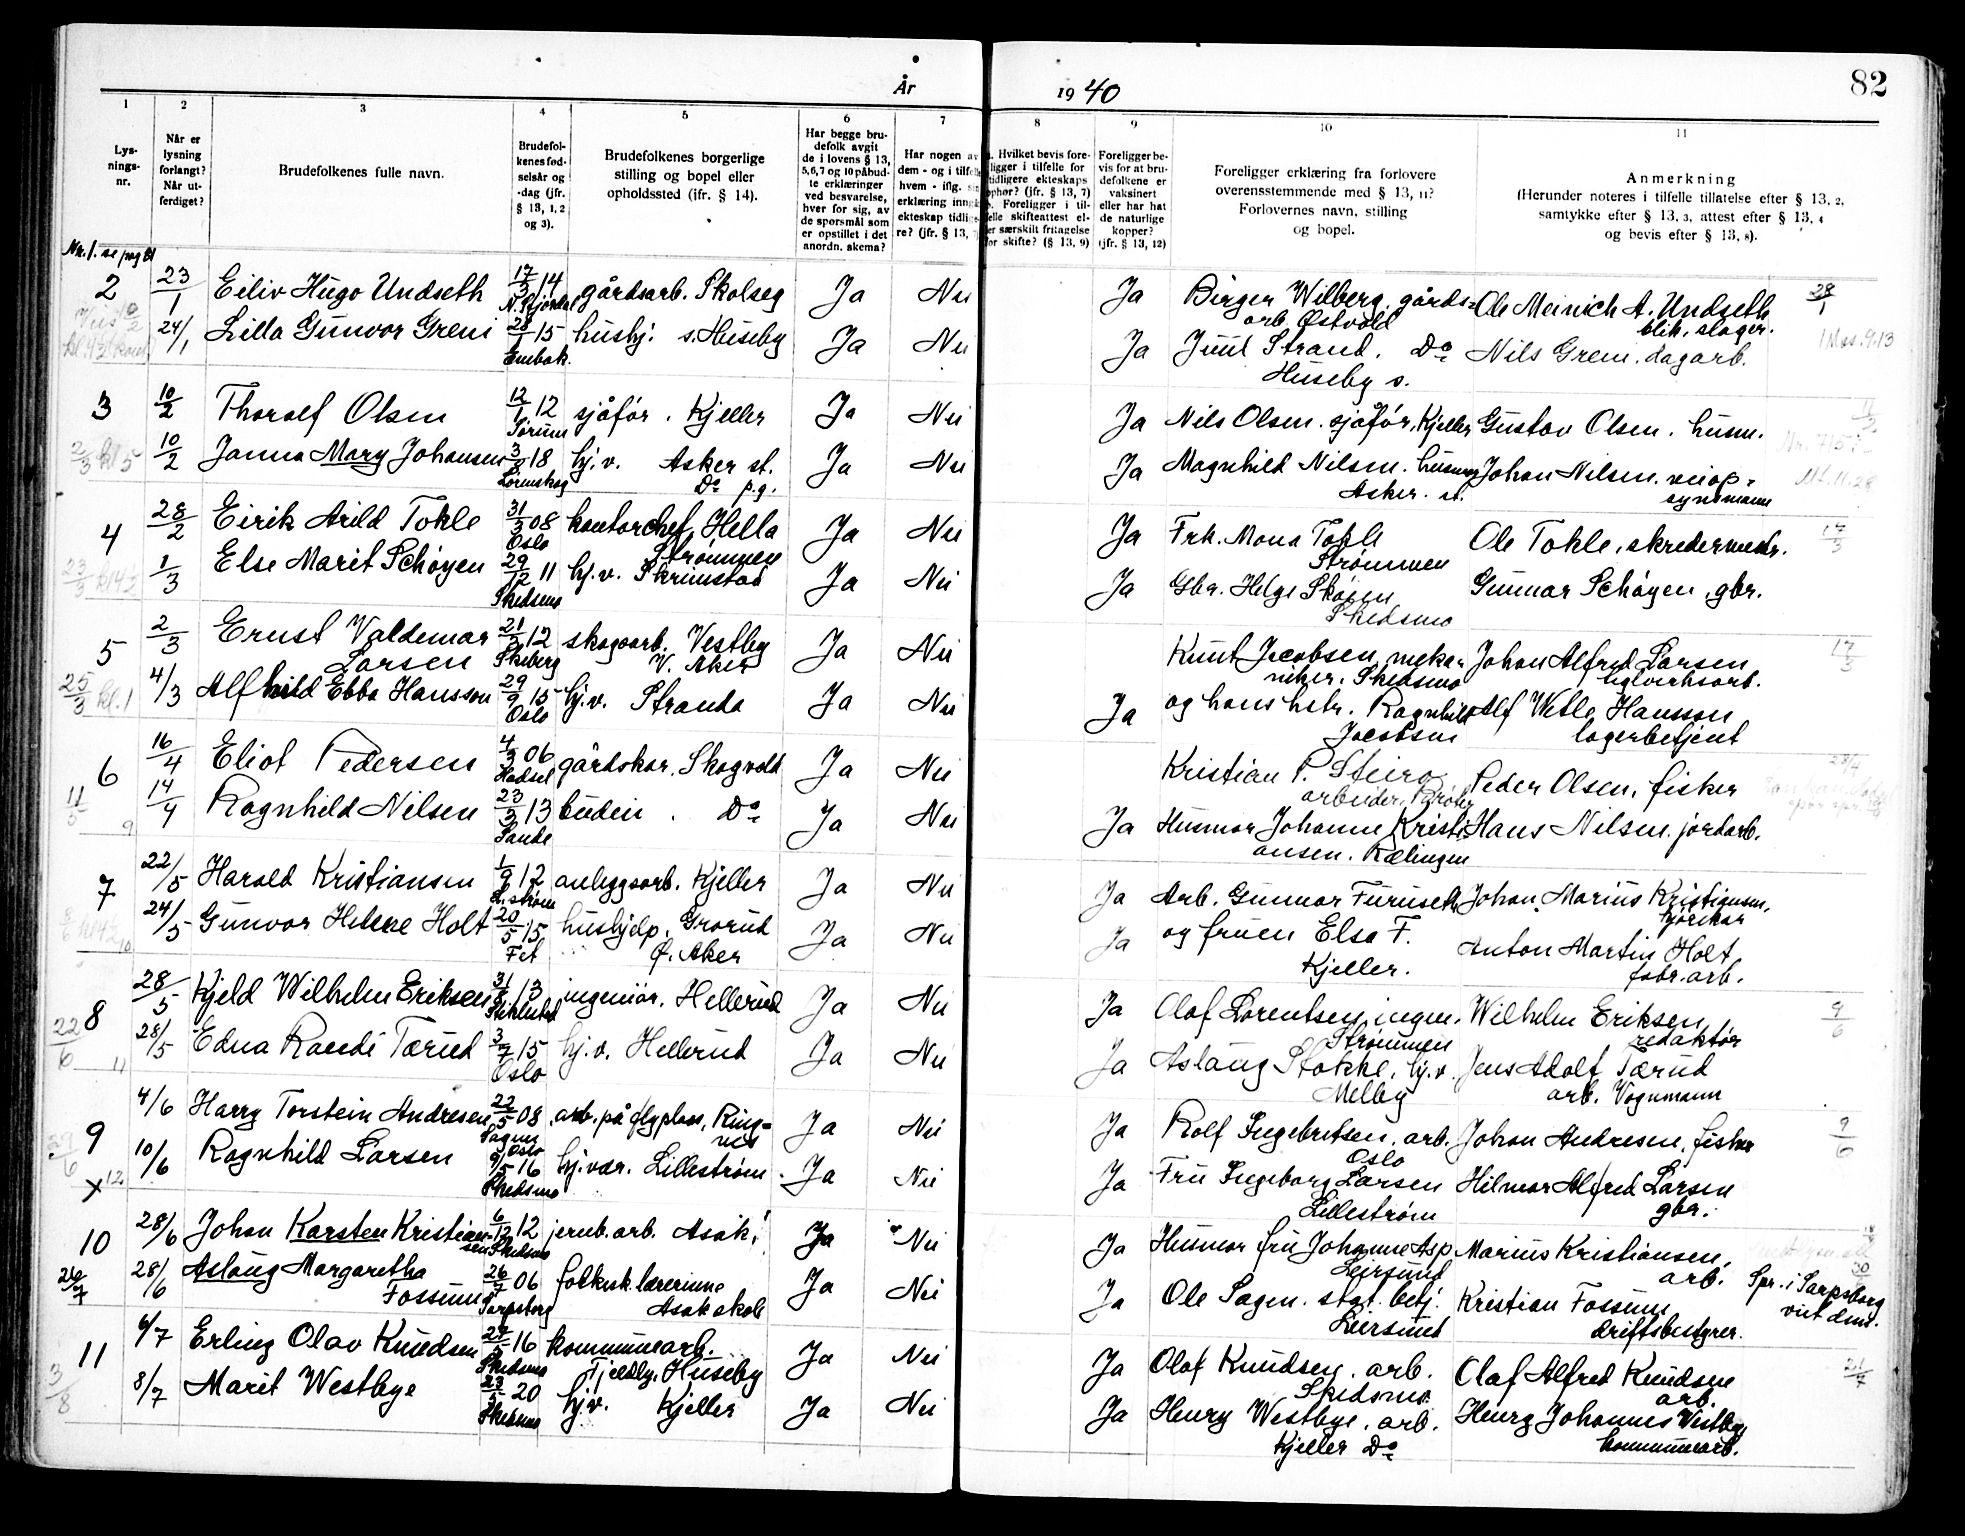 82
År 1940
1 2 3 4 5 6 7 8 9 10 11
Lys-
nings-
nr.
Når er
lysning
forlangt?
Når ut-
ferdiget?
Brudefolkenes fulle navn.
Brudefol-
kenes fød-
selsår og
-dag (jfr.
§ 13, 1, 2
og 3).
Brudefolkenes borgerlige
stilling og bopel eller
opholdssted (ifr. § 14).
Har begge bru-
defolk avgit
de i lovens § 13,
5, 6, 7 og 10 påbud-
te erklæringer
ved besvarelse,
hver for sig, av
de spørsmål som
er opstillet i det
anordn. skema?
Har nogen av
dem - og i tilfelle
hvem - iflg. sin
erklæring inngått
ekteskap tidlige-
re? (jfr. § 13, 7)
a. Hvilket bevis fore-
ligger i tilfelle for
tidligere ekteskaps
ophør? (jfr. § 13, 7)
b. Foreligger i til-
felle skifteattest el-
er særskilt fritagelse
for skifte? (§ 13, 9)
Foreligger be-
vis for at bru-
defolkene er
vaksinert
eller har hat
de naturlige
kopper?
(jfr. § 13, 12)
Foreligger erklæring fra forlovere
overensstemmende med § 13, 11?
Forlovernes navn, stilling
og bopel.
Anmerkning
(Herunder noteres i tilfelle tillatelse efter § 13, 2,
samtykke efter § 13, 3, attest efter § 13, 4
og bevis efter § 13, 8).
Nr. 1. se pag 81
2 23/1 Eiliv Hugo Undseth 17/3 14 gårdsarb. Skolseg Ja Nei Ja Birger Wilberg, gårds-
arb. Østvold Ole Meinich A. Undseth
blik. slager. 28/1
24/1 Lilla Gunvor Greni 28 15 hushj. s. Huseby Ja Nei Ja Juul Strand. Do
Huseby s. Nils Greni. dagarb. 1 Mos. 9.13
Enebak
3 10/2 Thoralf Olsen 12/1 12 sjåfør. Kjeller Ja Nei Ja Nils Olsen. sjåfør, Kjeller Gustav Olsen. husm. 11/2
Sørum
2/3 kl 5 10/2 Janna Mary Johansen 3/8 18 hj.v. Asker st. Ja Nei Ja Magnhild Nilsen. husmor
Asker. st. Johan Nilsen. veiop-
synsmann
Lørenskog Do p.g.
4 28/2 Eirik Arild Tokle 31/3 08 kontorchef, Hella
Strømmen Ja Nei Ja Frk. Mona Tokle
Strømmen Ole Tokle, skredermestr. 17/3
Oslo
23/3 1/3 Else Marit Schøyen 29/12 11 hj.v. Skrimstad Ja Nei Ja Gbr. Helge Skøien
Skedsmo Gunnar Schøyen, gbr.
Skedsmo
5 2/3 Ernst Valdemar
Larsen 21/3 12 skogsarb. Vestby
V. Aker Ja Nei Knut Jacobsen, meka-
niker. Skedsmo Johan Alfred Larsen
teglverksarb. 17/3
Skiberg
25/3 kl. 1 4/3 Alfhild Ebba Hansson 29/9 15 hj.v. Stranda Ja Nei Ja og hans hstr. Ragnhild
Jacobsen Alf Wetle Hansson
lagerbetjent
Oslo
6 16/4 Eliot Pedersen 4/3 06 gårdskar. Skogvold Ja Nei Kristian P. Steiro
arbeider, Peder Olsen, fisker 28/4
Hadsel
11/5 9 14/4 Ragnhild Nilsen 23/3 13 budeie. Do Ja Nei Ja Husmor Johanne Kristi-
ansen. Rælingen Hans Nilsen. jordarb.
Sande
7 22/5 Harald Kristiansen 1/9 12 anleggsarb. Kjeller Ja Nei Ja Arb. Gunnar Furuseth Johan Marius Kristiansen,
kjørekar
L. strøm
10 24/5 Gunvor Helene Holt 20/5 15 hushjelp, Grorud
Ø. Aker Ja Nei Ja og fruen Elsa F.
Kjeller. Anton Martin Holt
fabr. arb.
Fet
8 28/5 Kjeld Wilhelm Eriksen 31/8 13 ingeniør. Hellerud Ja Nei Ja Olaf Lorentsen, ingen.
Strømmen Wilhelm Eriksen,
redaktør 9/6
22/6 11 28/5 Edna Randi Tærud 3/7 15 hj.v. Hellerud Ja Nei Ja Aslaug Stokke, hj.v.
Melby Jens Adolf Tærud
arb. Vognmann
Oslo
9 4/6 Harry Torstein Andresen 22/5 08 arb. på flyplass, Ring-
nes Ja Nei Ja Rolf Ingebretsen. arb.
Oslo Johan Andresen, fisker 9/6
Sagene
Oslo
29/6 x 12 10/6 Ragnhild Larsen 9/5 16 hj.vær. Lillestrøm Ja Nei Ja Fru Ingeborg Larsen
Lillestrøm Hilmar Alfred Larsen
gbr.
Skedsmo
10 28/6 Johan Karsten Kristian-
sen 6/12 12 jernb. arb. Asak Ja Nei Ja Husmor fru Johanne Asp
Leirsund Marius Kristiansen,
arb. 30
Skedsmo
26/7 28/6 Aslaug Margaretha
Fossum 26/7 06 folkesk. lærerinne
Asak skole Ja Nei Ja Ole Sagen. stat. betj.
Leirsund Kristian Fossum
driftsbestyrer. Spr. i Sarpsborg
viet dem.
Sarpsborg
11 6/7 Erling Olav Knudsen 27/5 16 kommunearb.
Tjeldly, Huseby Ja Nei Ja Olaf Knudsen. arb.
Skedsmo Olaf Alfred Knudsen
arb. 21/7
Skedsmo
3/8 8/7 Marit Westbye 23/5 20 hj.v. Kjeller Ja Nei Ja Henry Westbye. arb.
Kjeller Do Henry Johannes Westbye
kommunearb.
Skedsmo